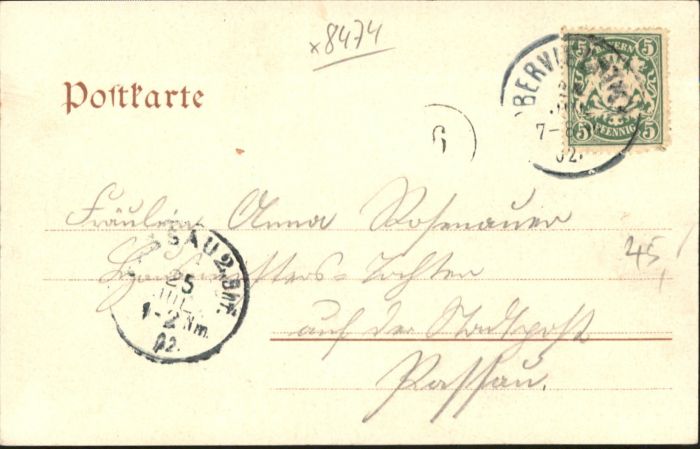 x8474
Postkarte
BAYERN
5 5
5 PFENNIG 5
7-8
02.
6
Fräulein Anna Rosenauer
Hausmeisters=Tochter
auf der Stadtpost
Passau.
45
PASSAU 2. Bhf.
25
JUL
1-2 Nm.
02.